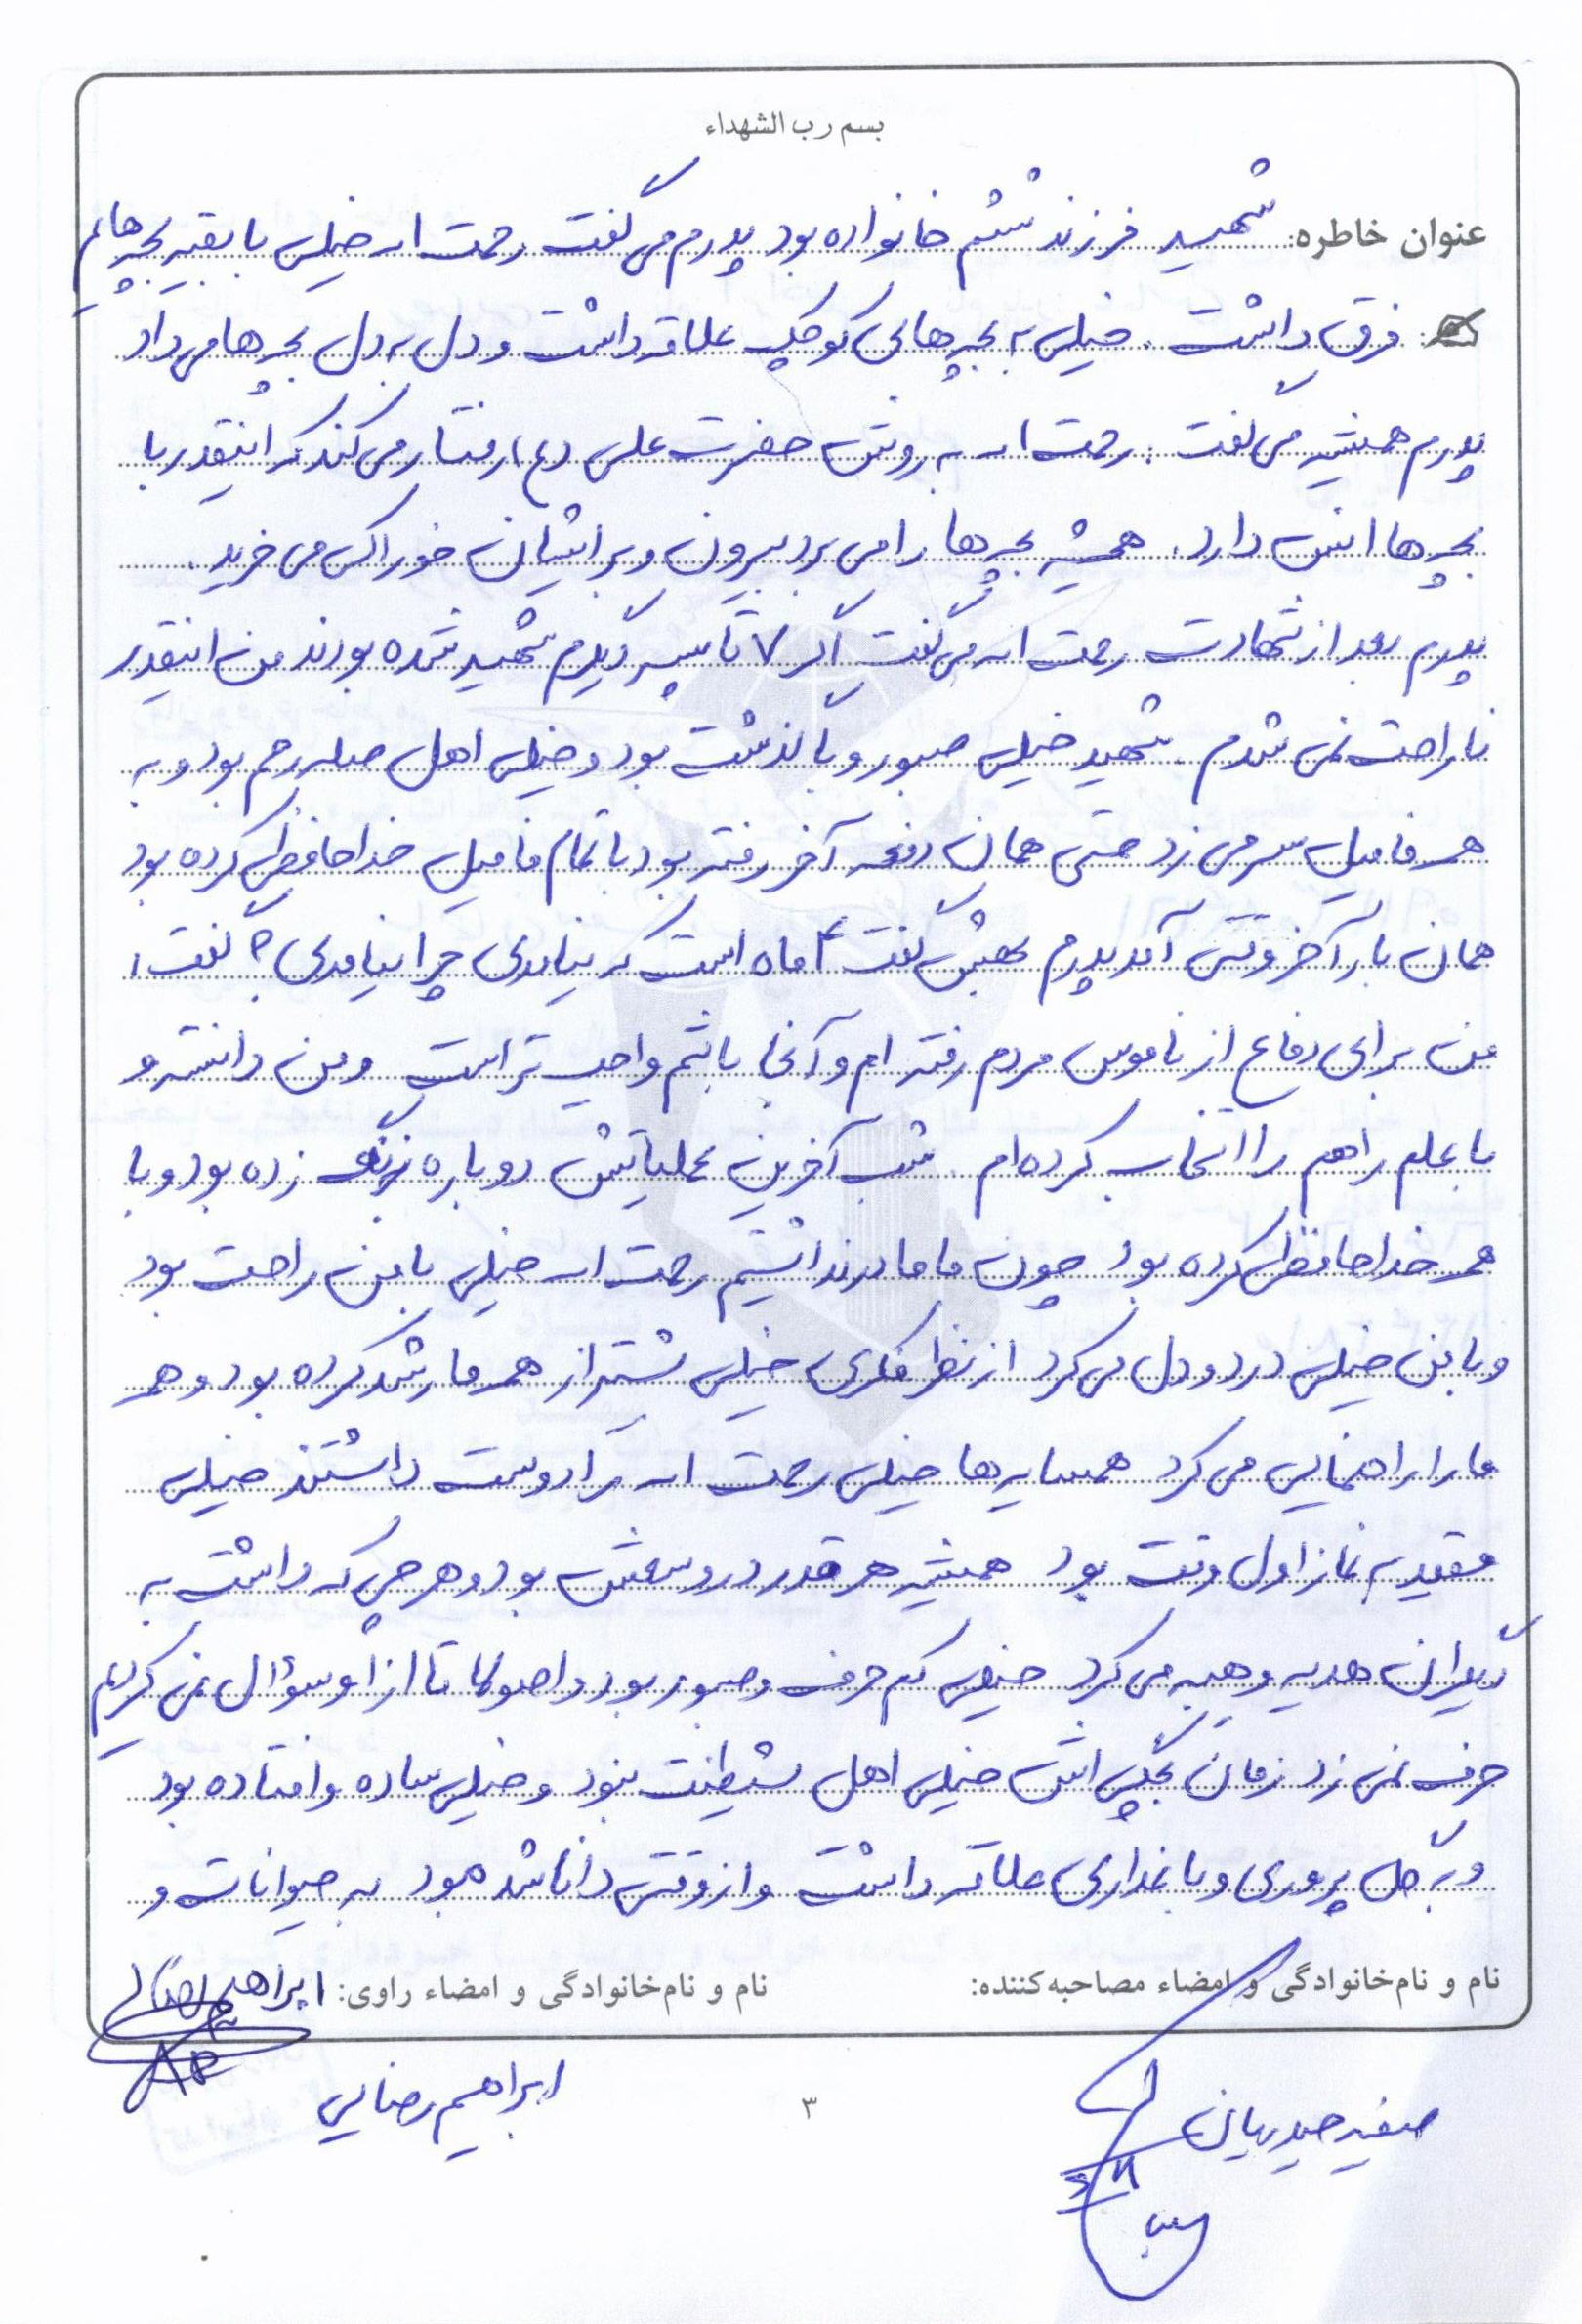 بسم رب الشهداء
عنوان خاطره: شهید فرزند ششم خانواده بود پدرم می گفت رحمت اله خیلی با بقیه بچه هایم
فرق داشت. خیلی به بچه های کوچک علاقه داشت و دل به دل بچه ها می داد
پدرم همیشه می گفت: رحمت اله به روش حضرت علی (ع) رفتار می کند که اینقدر با
بچه ها انس دارد. همیشه بچه ها را می برد بیرون و برایشان خوراکی می خرید.
پدرم بعد از شهادت رحمت اله می گفت اگر ۷ تا پسر دیگرم شهید شده بودند من اینقدر
ناراحت نمی شدم. شهید خیلی صبور و با گذشت بود و خیلی اهل صله رحم بود و به
همه فامیل سر می زد حتی همان دفعه آخر رفته بود با تمام فامیل خداحافظی کرده بود
همان بار آخر وقتی آمد پدرم بهش گفت ۴ ماه است که نیامدی چرا نیامدی؟ گفت:
من برای دفاع از ناموس مردم رفته ام و آنجا باشم واجب تر است و من دانسته و
با علم راهم را انتخاب کرده ام. شب آخرین عملیاتش دوباره زنگ زده بود و با
همه خداحافظی کرده بود چون ما مادر نداشتیم رحمت اله خیلی با من راحت بود
و با من خیلی درد و دل می کرد از نظر فکری خیلی بیشتر از همه ما رشد کرده بود و همه
ما را راهنمایی می کرد همسایه ها خیلی رحمت اله را دوست داشتند خیلی
مقید به نماز اول وقت بود همیشه هر قدر در وسعش بود و هر چی که داشت به
دیگران هدیه و هبه می کرد خیلی کم حرف و صبور بود و اصولا تا از او سؤال نمی کردیم
حرف نمی زد زمان بچگی اش خیلی اهل شیطنت نبود و خیلی ساده و افتاده بود
و به گل پروری و باغداری علاقه داشت و از وقتی دانا شده بود به حیوانات و
نام و نام‌خانوادگی و امضاء مصاحبه‌کننده: نام و نام‌خانوادگی و امضاء راوی: ابراهیم رضایی
صفیه حیدریان ۳ ابراهیم رضایی